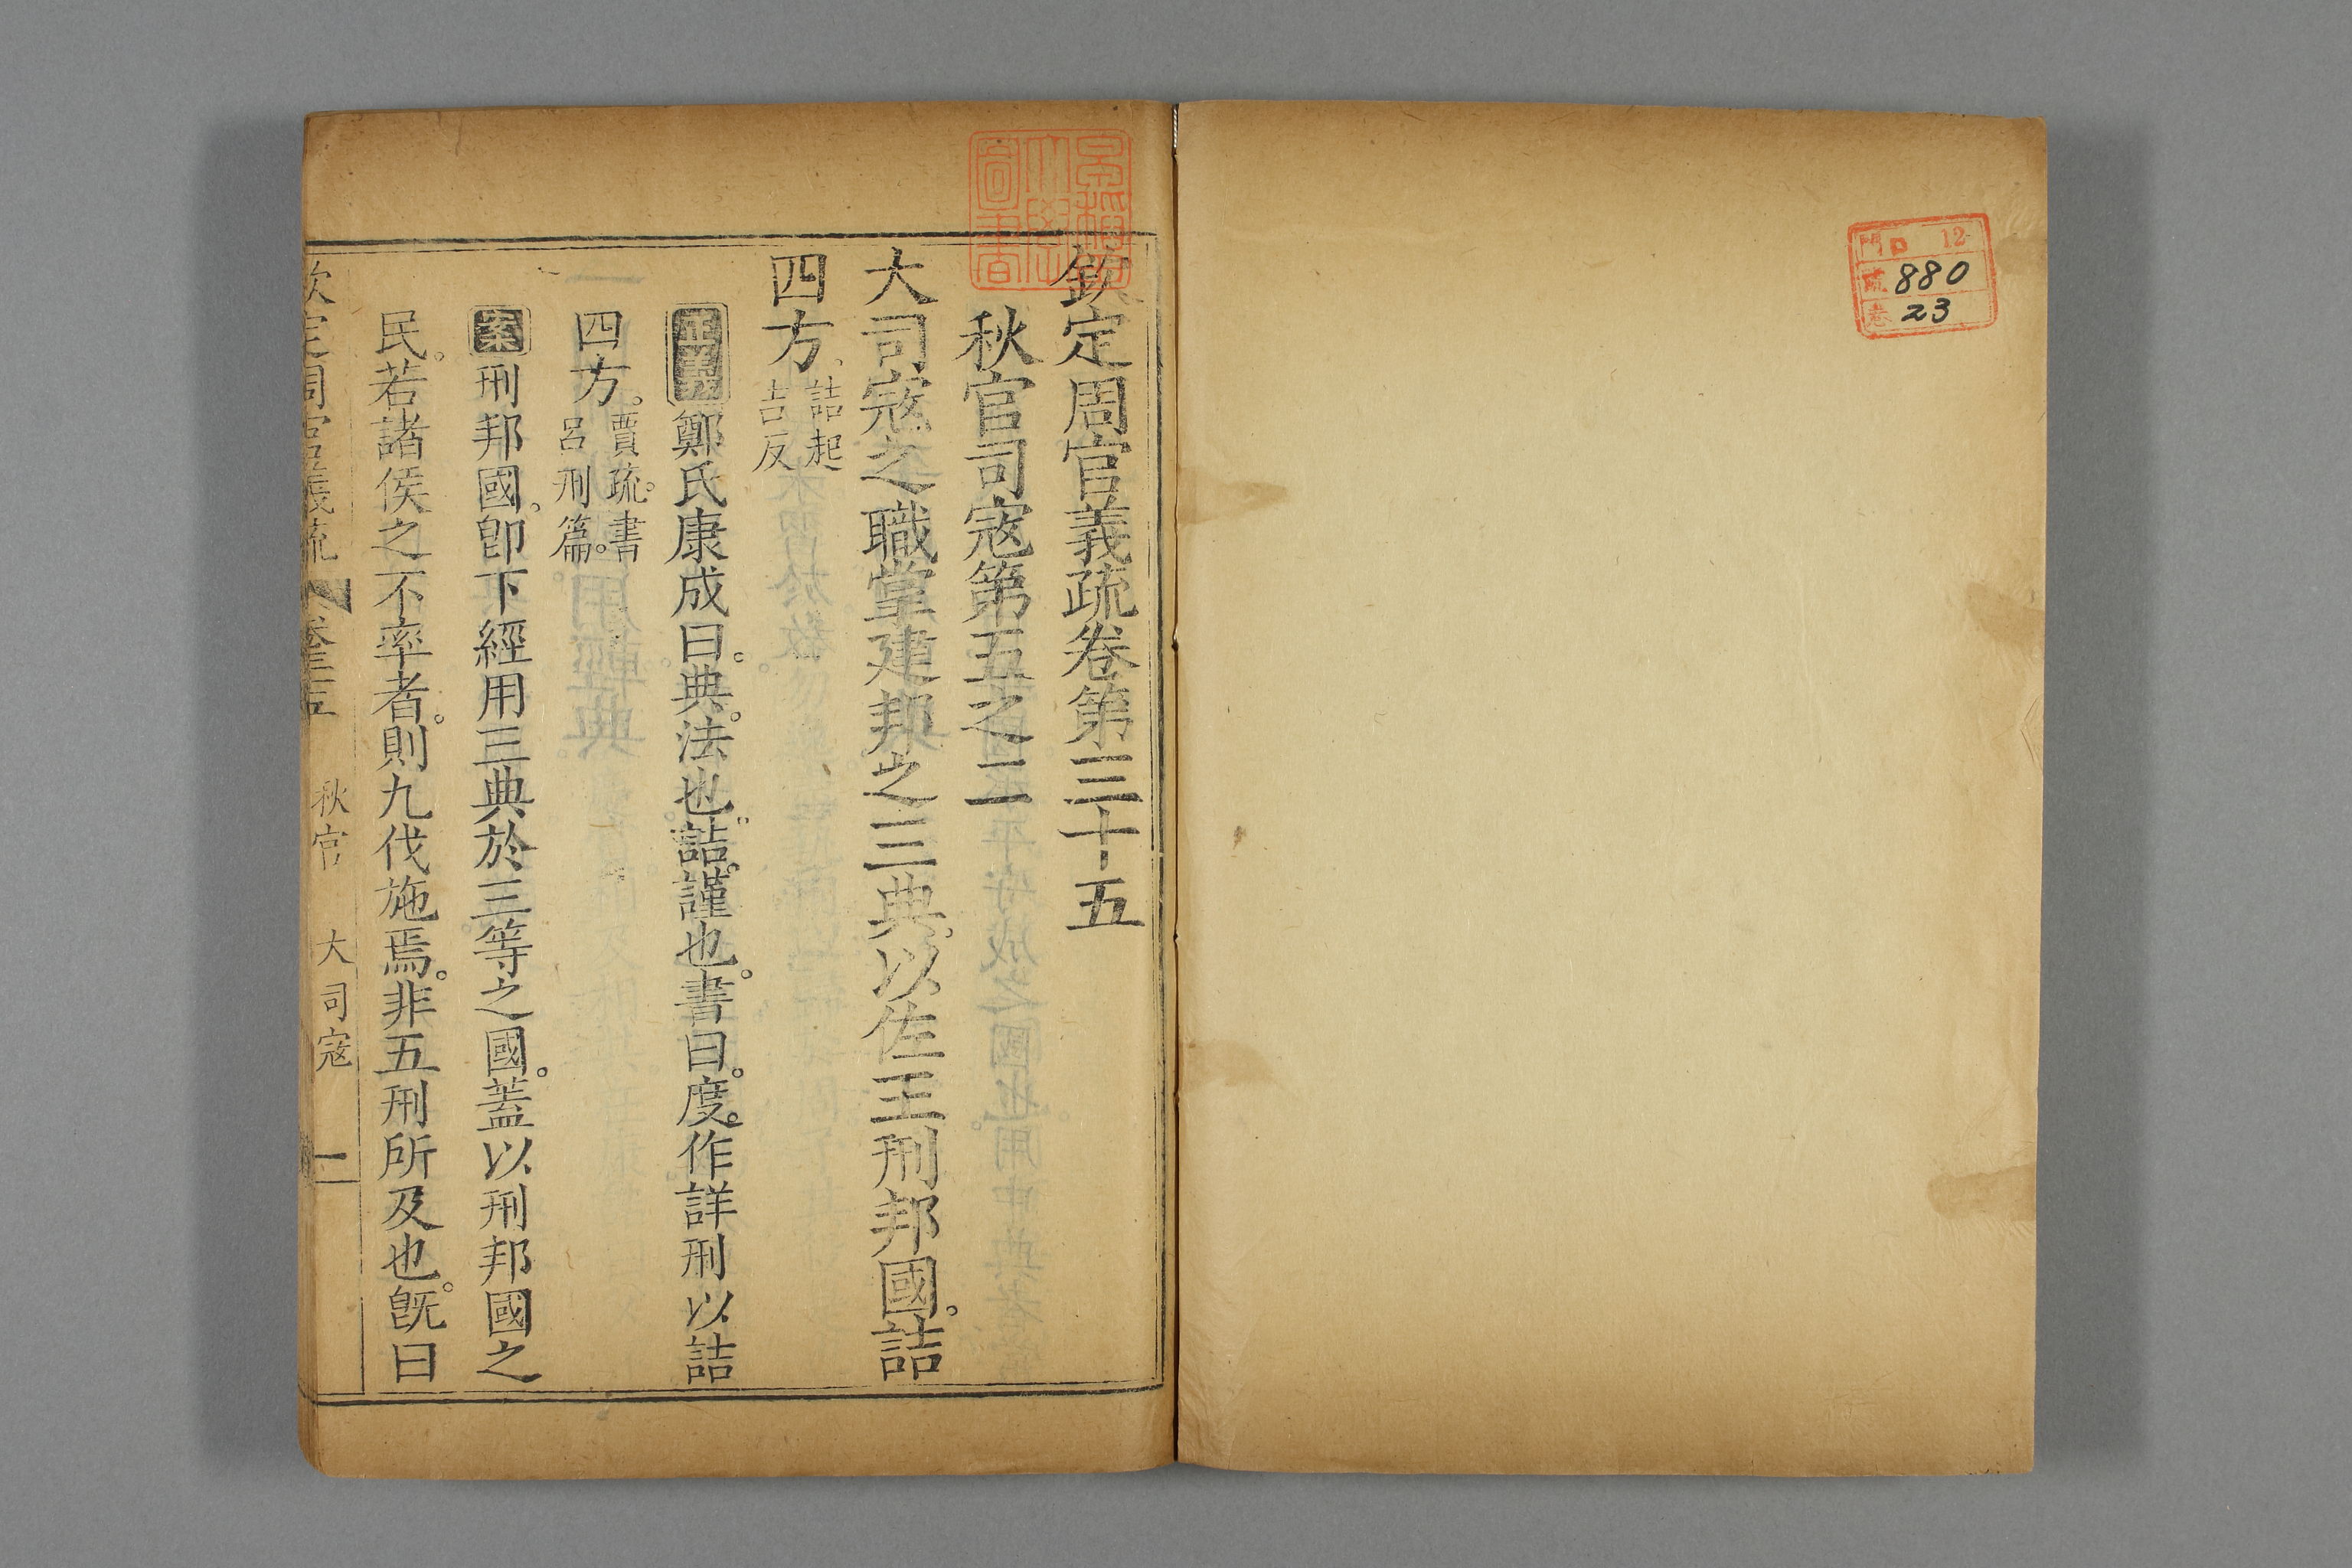 門 口 12
號 880
卷 23
早稲田大學圖書
欽定周官義疏卷第三十五
秋官司寇第五之二
大司寇之職掌建邦之三典。以佐王刑邦國。詰
四方。詰起吉反
正義鄭氏康成曰。典。法也。詰。謹也。書曰。度。作詳刑以詰
四方。賈疏。書呂刑篇。
案刑邦國。卽下經用三典於三等之國。蓋以刑邦國之
民。若諸侯之不率者。則九伐施焉。非五刑所及也。旣曰
欽定周官義疏 卷三十五 秋官 大司寇 一